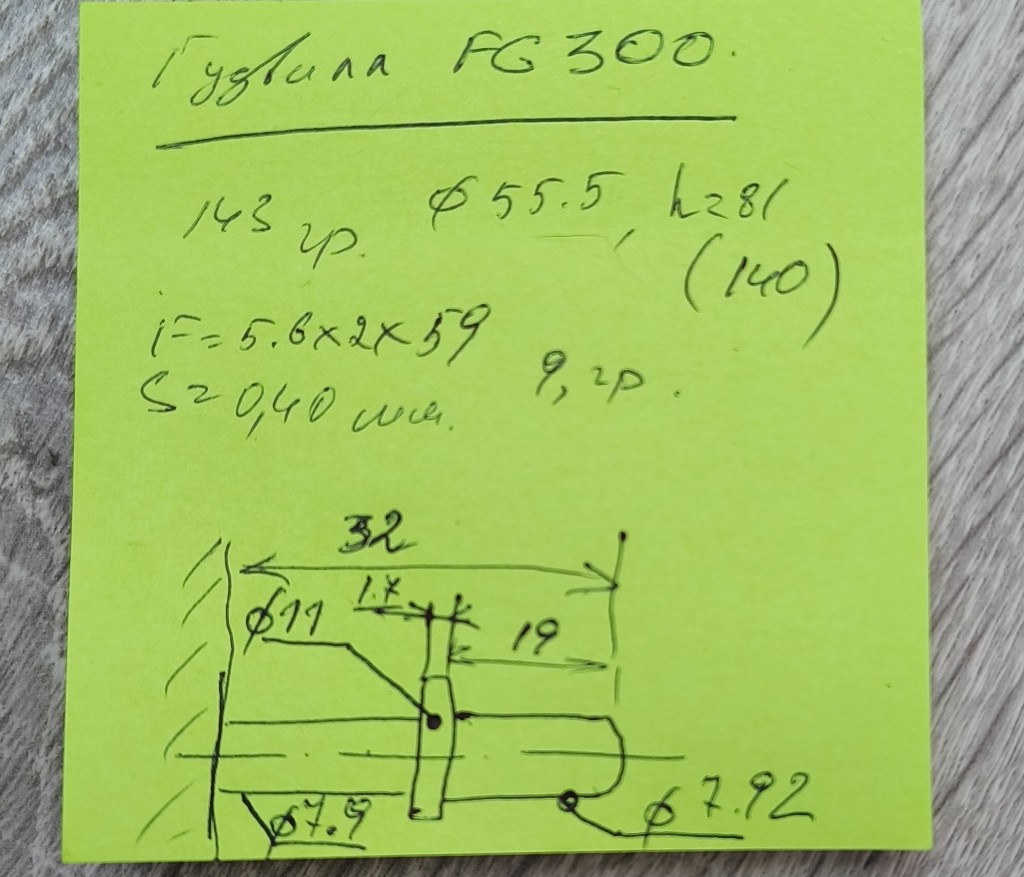 Гудвилл FG 300.
143 гр. ϕ 55.5, h=81
(140)
F= 5.6x2x59
S= 0,40 мм. 9, гр.
32
1.7
ϕ11
19
ϕ7.9
ϕ7.92